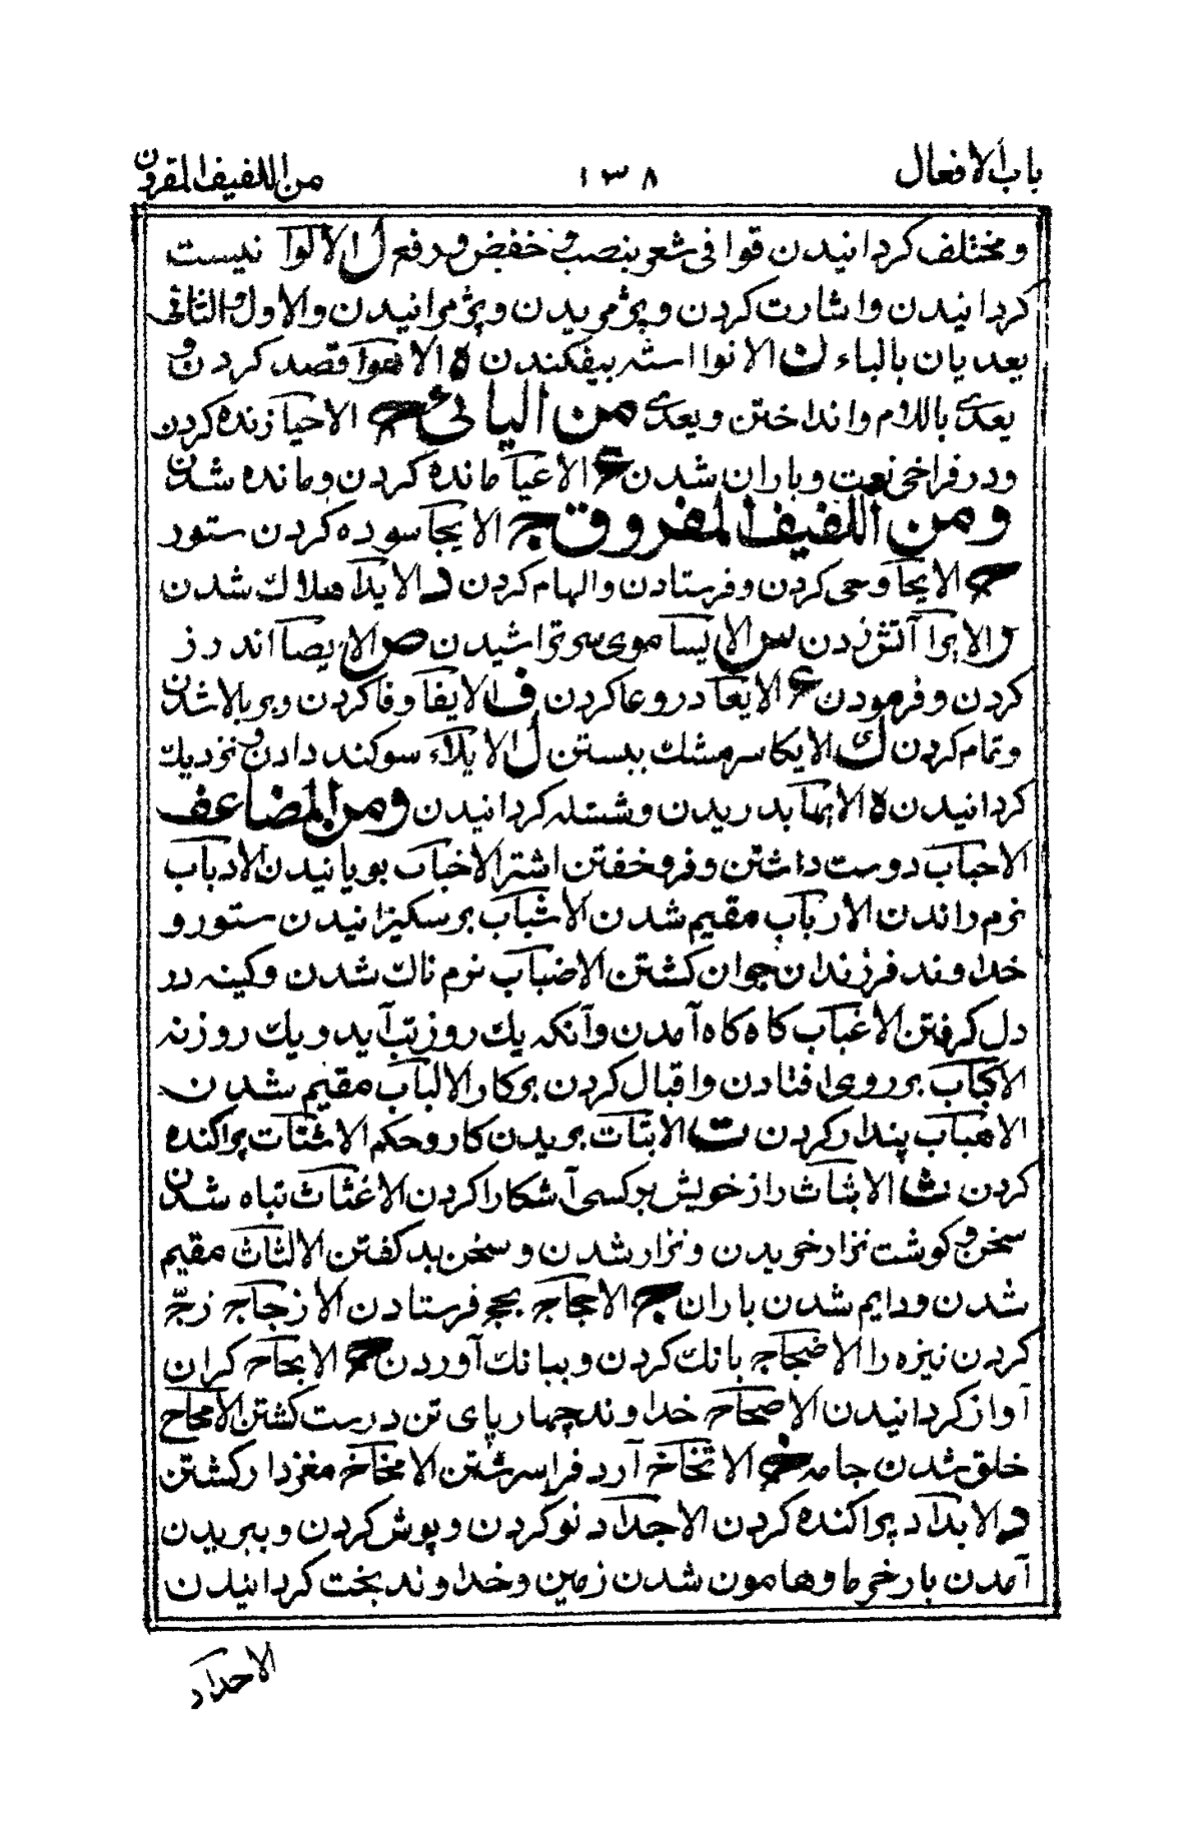 باب الافعال ١٣٨ من اللفيف المقرون
ومختلف كردانيدن قوافى شعر بنصب و خفض و رفع ل الالوا نيست
كردانيدن واشارت كردن وپژمريدن وپژمرانيدن والاول والثانى
يعديان بالباء ن الانوا استه بيفكندن ه الاهوا قصد كردن و
يعدے باللام وانداختن ويعدے من اليائى ح الاحيا زنده كردن
ودر فراخى نعمت وباران شدن ع الاعيا مانده كردن ومانده شدن
ومن اللفيف المفروق ج الايجا سوده كردن ستور
ح الايحا وحى كردن وفرستادن والهام كردن د الايدا هلاك شدن
ر الايرا آتش زدن س الايسا موى سر تراشيدن ص الايصا اندرز
كردن وفرمودن ع الايعا در وعا كردن ف الايفا وفا كردن وبر بالا شدن
وتمام كردن ك الايكا سر مشك ببستن ل الايلاء سوكند دادن و نزديك
كردانيدن ه الايها بدريدن وشسته كردانيدن ومن المضاعف
الاحباب دوست داشتن وفرو خفتن اشتر الاخباب بويانيدن الادباب
نرم راندن الارباب مقيم شدن الاشباب بر سكيزانيدن ستور و
خداوند فرزندان جوان كشتن الاضباب نرم ناك شدن وكينه در
دل كرفتن الاغباب كاه كاه آمدن وآنكه يك روز تب آيد و يك روز نه
الاكباب بر روى افتادن واقبال كردن بر كار الالباب مقيم شدن
الاهباب پندار كردن ت الابتات بريدن كار وحكم الاشتات پراكنده
كردن ث الابثاث راز خويش بر كسى آشكارا كردن الاغثاث تباه شدن
سخن و كوشت نزار خريدن ونزار شدن وسخن بد كفتن الالثاث مقيم
شدن ودايم شدن باران ج الاحجاج بحج فرستادن الازجاج زجّ
كردن نيزه را الاضجاج بانك كردن وببانك آوردن ح الابحاح كران
آواز كردانيدن الاصحاح خداوند چهارپاى تن درست كشتن الامحاح
خلق شدن جامه خ الاتخاخ آرد فرا سرشتن الامخاخ مغزدار كشتن
د الابداد پراكنده كردن الاجداد نو كردن وپوش كردن وببريدن
آمدن بار خرما وهامون شدن زمين وخداوند بخت كردانيدن
الاحداد